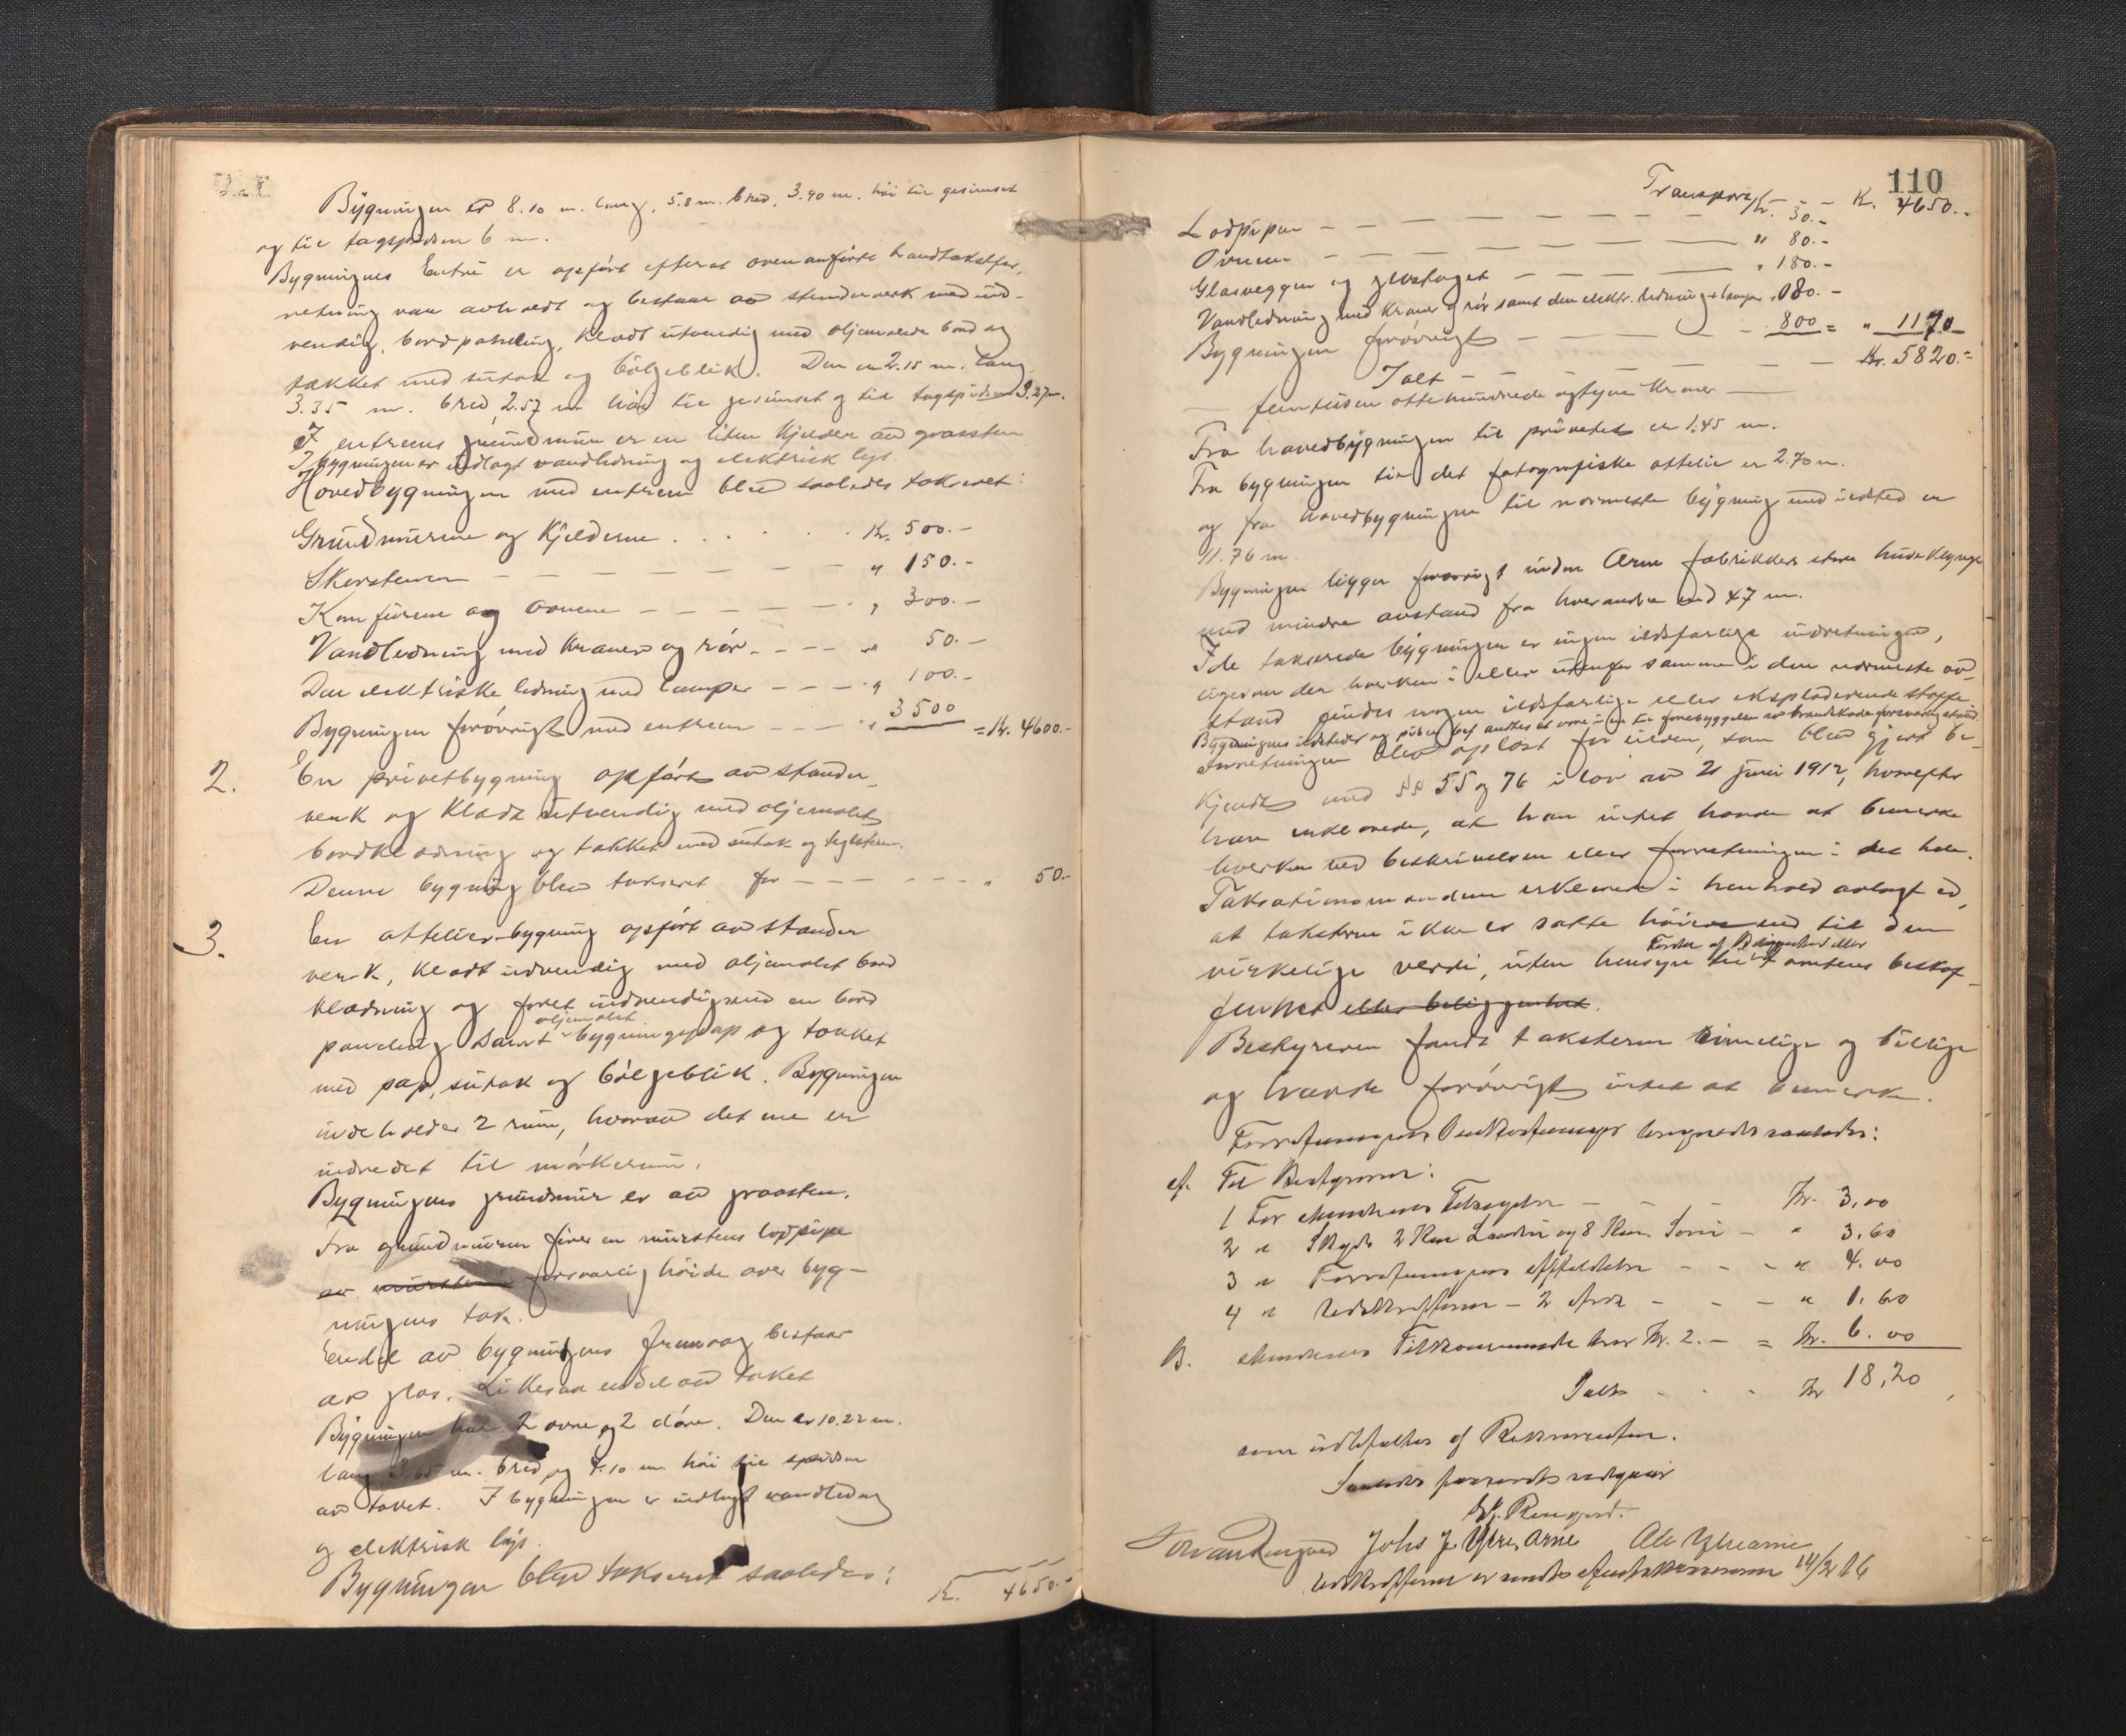 Bygningen er 8.10 m. lang, 5.8 m. bred, 3.90 m. høi til gesimset
og til tagspidsen 6 m.
Bygningens Entré er opført efterat ovenanførte brandtakstfor-
retning var avholdt og bestaar av stenderverk med ind-
vendig bordpaneling, klædt utvendig med oljemalede bord og
tækket med sutak og bølgeblik. Den er 2.15 m. lang
3.35 m. bred 2.57 m høi til gesimset og til tagspidsen 3.27 m.
I entreens grundmur er en liten kjelder av graasten
I bygningen er indlagt vandledning og elektrisk lys.
Hovedbygningen med entreen blev saaledes taksert:
Grundmurene og Kjelderne . . . . . Kr. 500.-
Skorstenen — — — — — — " 150.-
Komfurene og ovnene — — — — — " 300.-
Vandledning med kraner og rør - - - - " 50.-
Den elektriske ledning med lamper - - - - " 100.-
Bygningen forøvrigt med entreen - - - - " 3500 = Kr. 4600.-
2. En privetbygning opført av stender-
verk og klædt utvendig med oljemalet
bordklædning og tækket med sutak og teglsten.
Denne bygning blev taksert for - - - - - - " 50.-
3. En attelier-bygning opført av stender
verk, klædt udvendig med oljemalet bord
klædning og foret indvendig med en bord
oljemalet
paneling samt bygningspap og tækket
med pap, sutak og bølgeblik. Bygningen
indeholder 2 rum, hvorav det ene er
indredet til mørkerum.
Bygningens grundmur er av graasten.
Fra grundmuren fører en murstens lodpipe
av mursten forsvarlig høide over byg-
ningens tak.
Endel av bygningens fremvæg bestaar
av glas. Likesaa endel av taket
Bygningen har 2 ovne og 2 døre. Den er 10.22 m.
lang 3.65 m. bred og 4.10 m. høi til spidsen
av taket. I bygningen er indlagt vandledning
og elektrisk lys.
Bygningen blev taksert saaledes:
K. 4650.-
110
Transport — — K. 4650.-
Lodpipen — — — — — Kr. 30.-
Ovnene — — — — — " 80.-
Glasveggen og glastaget — — — — " 180.-
Vandledning med kraner og rør samt den elektr. ledning + lamper " 080.-
Bygningen forøvrigt — — — — - 800 = " 1170
Ialt — — — — — Kr. 5820.-
— femtusen ottehundrede og tyve Kroner —
Fra hovedbygningen til privetet er 1.45 m.
Fra bygningen til det fotografiske attelie er 2.70 m.
og fra hovedbygningen til nærmeste bygning med ildsted er
11.76 m.
Bygningen ligger forøvrigt inden Arne fabrikkers store huseklynge
med mindre avstand fra hverandre end 47 m.
I de takserede bygninger er ingen ildsfarlige indretninger,
ligesom der hverken i eller utenfor samme i den nærmeste av-
stand findes nogen ildsfarlige eller eksploderende stoffe
Bygningens ildsteder og piber bef antages at være i en til forebyggelse av brandskade forsvarlig stand.
Forretningen blev oplæst for eieren, som blev gjort be-
kjendt med §§ 55 og 76 i lov av 21 juni 1912, hvorefter
han erklærede, at han intet havde at bemerke
hverken ved beskrivelsen eller forretningen i det hele.
Taksationsmændene erklærede i henhold avlagt ed,
at taksterne ikke er satte høiere end til den
Tomten og Beliggenhed eller
virkelige verdi, uten hensyn til tomtens beskaf-
fenhet eller beliggenhet.
Bestyreren fandt taksterne rimelige og billige
og havde forøvrigt intet at bemerke.
Forretningens Omkostninger beregnedes saaledes:
A. Til Bestyreren:
1 For Mændenes Tilsigelse — - - Kr. 3,00
2 " Skyds 2 Km Landvei og 8 Km. - " 3.60
3 " Forretningens - - - " 4.00
4 " Udskrifterne - 2 - - - " 1.60
B. Mændenes Tilkommende hver Kr. 2.- = Kr. 6.00
Ialt - - - Kr 18,20
som udbetaltes af Rekvirenten.
Saaledes passeret
Johs J. Ytre Arne Ole Ytrearne
Udskrifterne er sendt 14/2 16